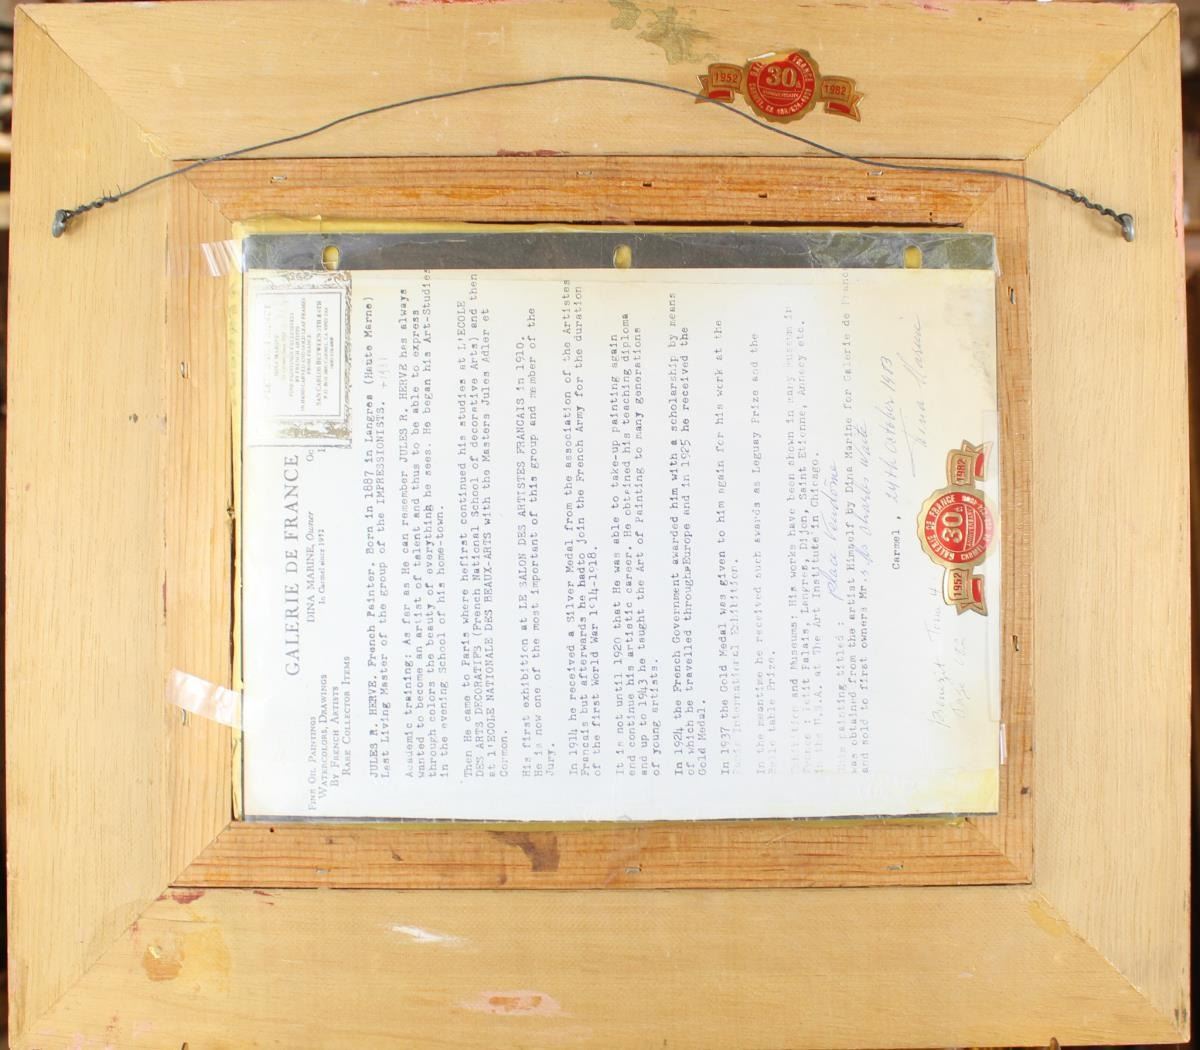 1952
30
ANNIVERSARY
1982
GALERIE DE FRANCE
DINA MARINE, Owner
In Carmel since 1952
FINE OIL PAINTINGS
WATERCOLORS, DRAWINGS
BY FRENCH ARTISTS
RARE COLLECTOR ITEMS
JULES R. HERVE. French Painter. Born in 1887 in Langres (Haute Marne)
Last Living Master of the group of the IMPRESSIONISTS.
Academic training: As far as He can remember JULES R. HERVE has always
wanted to become an artist of talent and thus to be able to express
through colors the beauty of everything he sees. He began his Art-Studies
in the evening School of his home-town.
Then He came to Paris where hefirst continued his studies at L'ECOLE
DES ARTS DECORATIFS (French National School of decorative Arts) and then
at l'ECOLE NATIONALE DES BEAUX-ARTS with the Masters Jules Adler et
Cormon.
His first exhibition at LE SALON DES ARTISTES FRANCAIS in 1910.
He is now one of the most important of this group and member of the
Jury.
In 1914 he received a Silver Medal from the association of the Artistes
Francais but afterwards he hadto join the French Army for the duration
of the first World War 1914-1918.
It is not until 1920 that He was able to take-up painting again
and continue his artistic career. He obtained his teaching diploma
and up to 1943 he taught the Art of Painting to many generations
of young artists.
In 1924 the French Government awarded him with a scholarship by means
of which he travelled through Europe and in 1925 he received the
Gold Medal.
In 1937 the Gold Medal was given to him again for his work at the
Paris International Exhibition.
In the meantime he received such awards as Leguay Prize and the
table Prize.
and Museums: His works have been shown in many museum in
France : Petit Palais, Langres, Dijon, Saint Etienne, Annecy etc.
in the U.S.A. at The Art Institute in Chicago.
This painting titled : Place Vendome
was obtained from the artist Himself by Dina Marine for Galerie de France
and sold to first owners Mr. & Mrs Charles White
Carmel , 24th October 1983
Dina Marine
GALERIE DE FRANCE
1952
30
ANNIVERSARY
1982